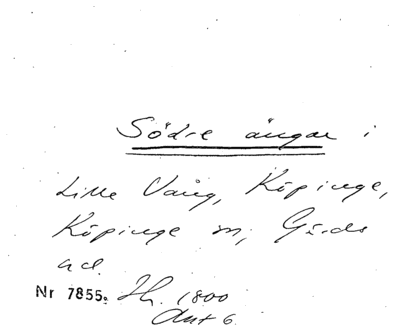 Södre ängar i
Lille Vång, Köpinge,
Köpinge sn, Gärds
hd.
Nr 7855. Jh. 1800
Akt 6